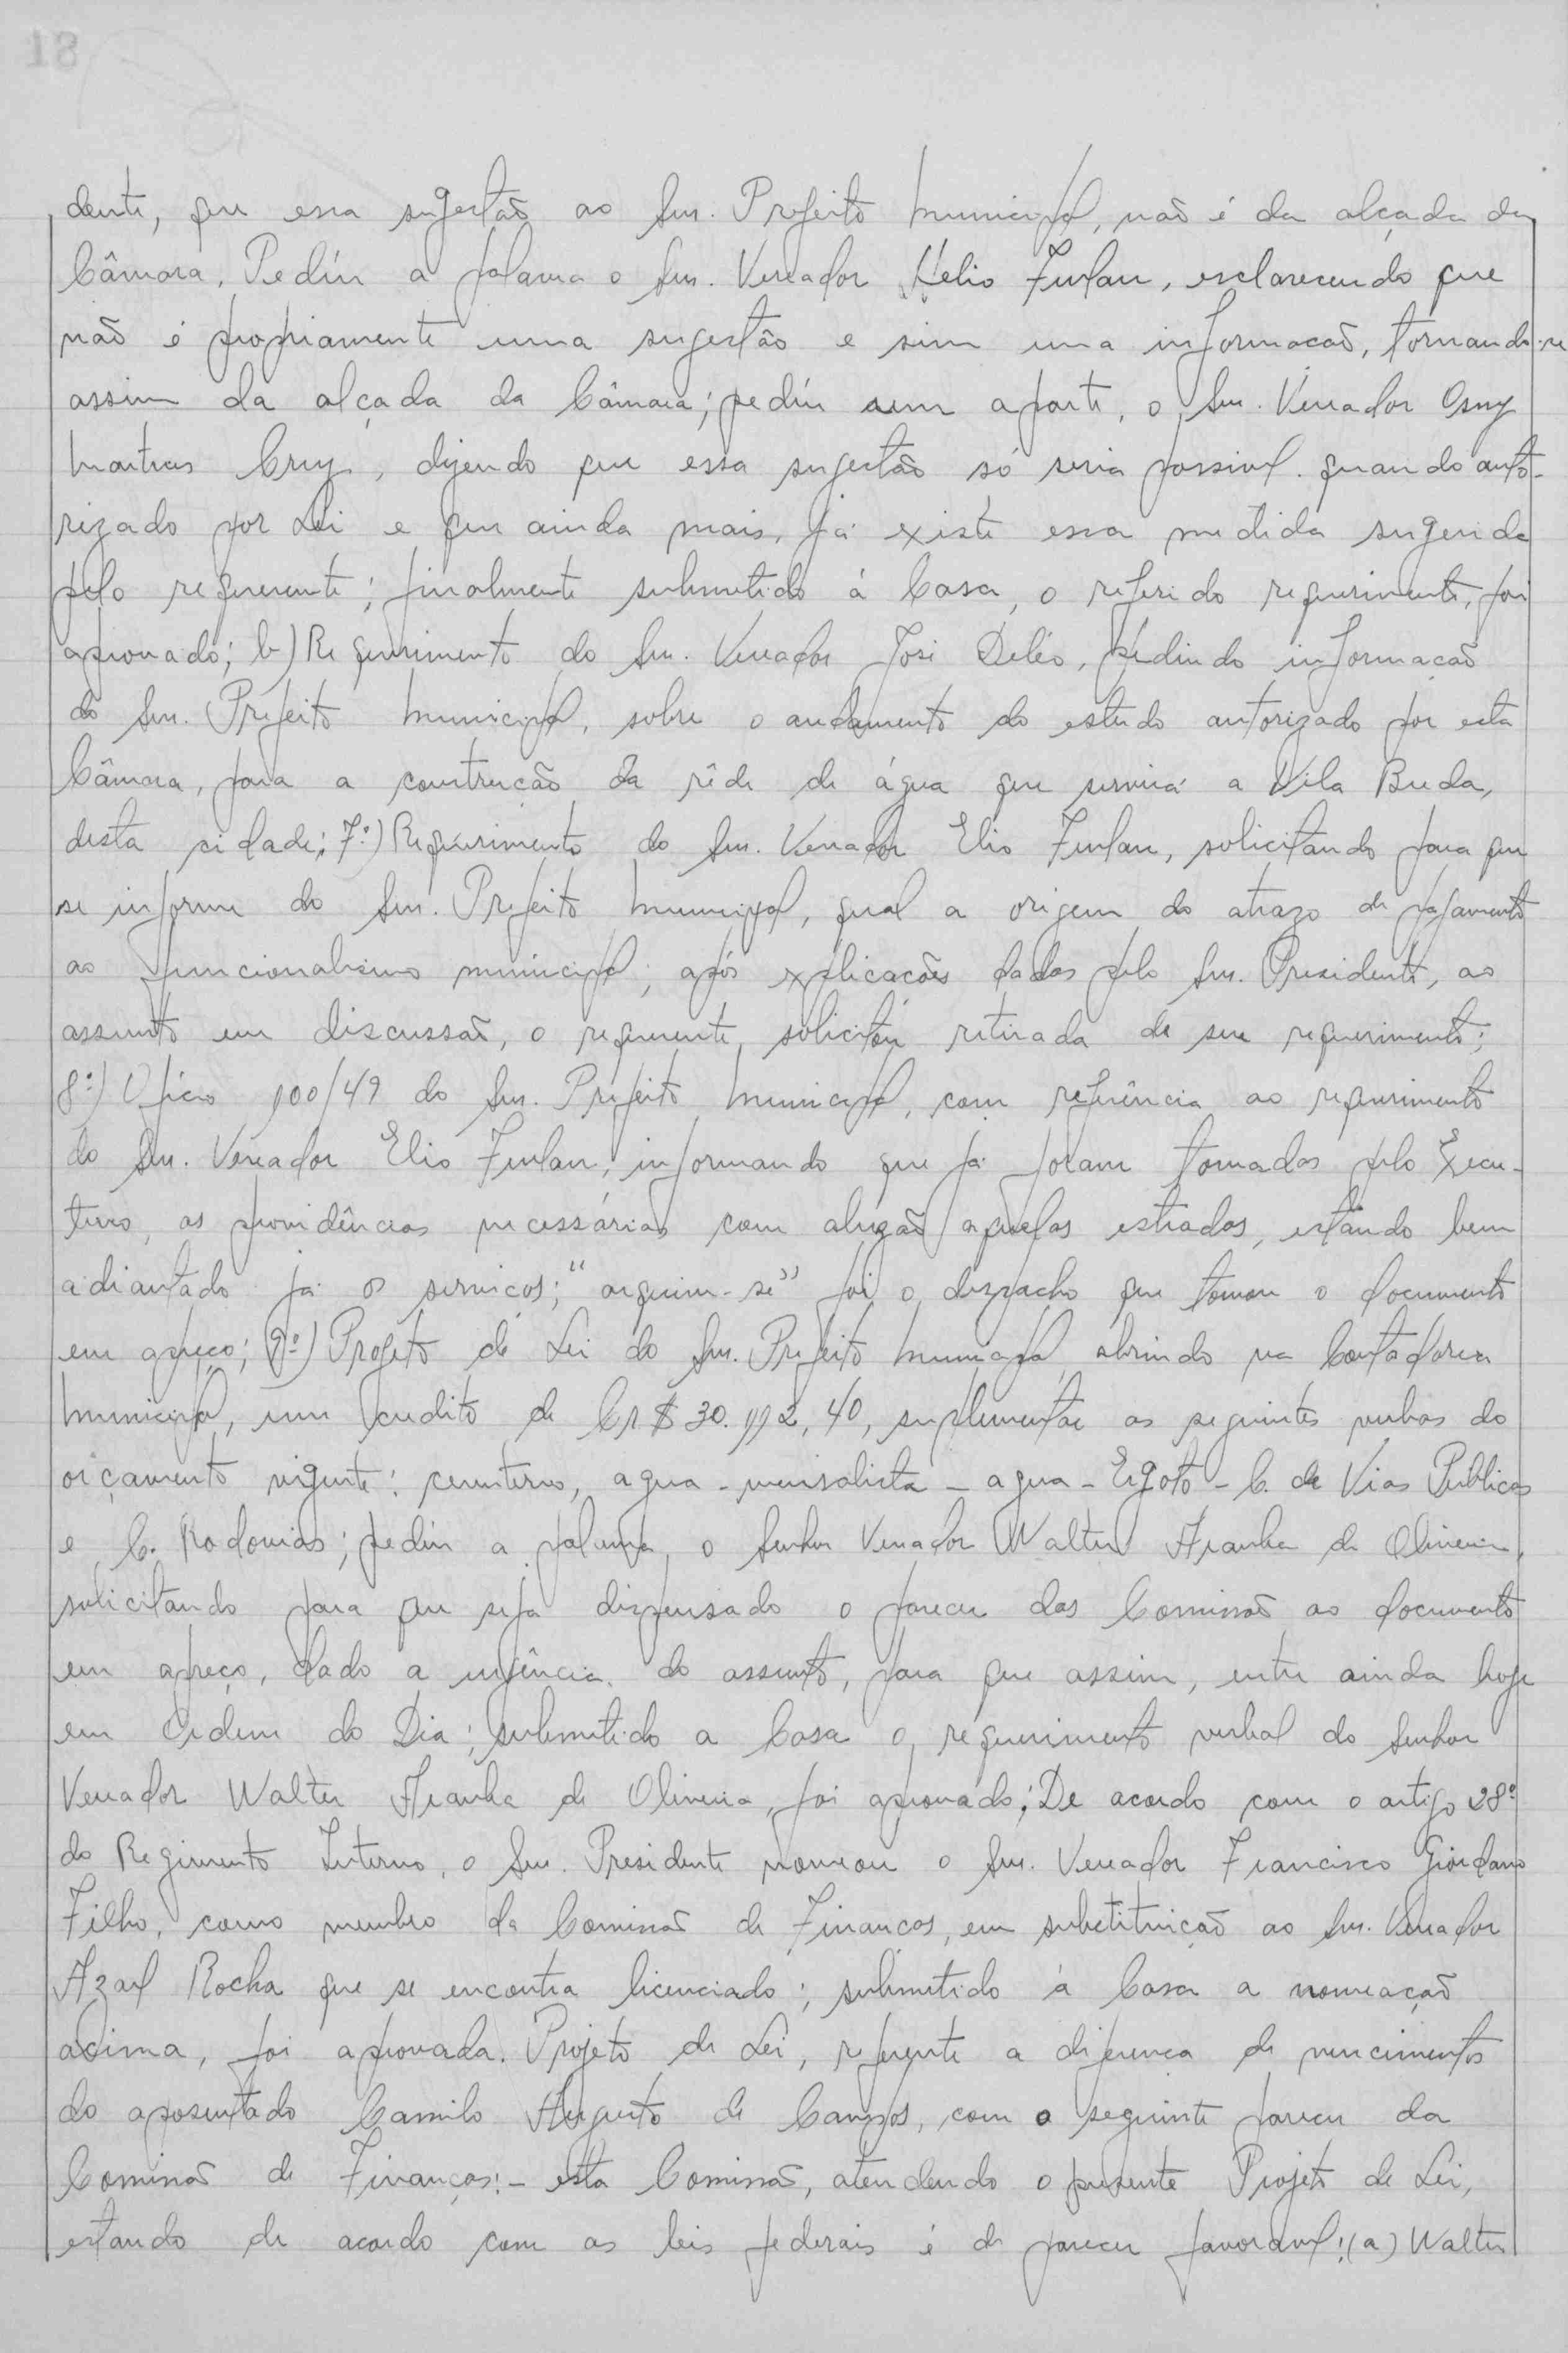 18
dente, que essa sugestão ao Snr. Prefeito Municipal, não é da alçada da
Câmara. Pediu a palavra o Snr. Vereador Helio Furlan, esclarecendo que
não é propriamente uma sugestão e sim uma informação, tornando-se
assim da alçada da Câmara; pediu um aparte, o Snr. Vereador Osny
Martins Cruz, dizendo que essa sugestão só seria possivel quando auto-
rizado por Lei e que ainda mais, já existe essa medida sugerida
pelo requerente; finalmente submetido á Casa, o referido requerimento, foi
aprovado; b) Requerimento do Snr. Vereador José Deléo, pedindo informação
do Snr. Prefeito Municipal, sobre o andamento do estudo autorizado por esta
Câmara, para a construção da rêde de água que servirá a Vila Buda,
desta cidade; 7º) Requerimento do Snr. Vereador Elio Furlan, solicitando para que
se informe do Snr. Prefeito Municipal, qual a origem do atrazo de pagamento
ao funcionalismo municipal; após explicações dadas pelo Snr. Presidente, ao
assunto em discussão, o requerente, solicitou retirada de seu requerimento;
8º) Oficio 100/49 do Snr. Prefeito Municipal, com referência ao requerimento
do Snr. Vereador Elio Furlan, informando que já foram tomadas pelo Execu-
tivo, as providências necessárias com alusão aquelas estradas, estando bem
adiantado já os serviços; "arquive-se" foi o dispacho que tomou o documento
em apreço; 9º) Projeto de Lei do Snr. Prefeito Municipal abrindo na Contadoria
Municipal, um credito de Cr$ 30.112,40, suplementar as seguintes verbas do
orçamento vigente: cemiterio, agua - mensalista - agua - Esgoto - C. de Vias Publicas
e C. Rodovias; pediu a palavra, o Senhor Vereador Walter Aranha de Oliveira,
solicitando para que seja dispensado o parecer das Comissão ao documento
em apreço, dado a urgência do assunto, para que assim, entre ainda hoje
em Ordem do Dia; submetido a Casa o requerimento verbal do Senhor
Vereador Walter Aranha de Oliveira, foi aprovado; De acordo com o artigo 28º
do Regimento Interno, o Snr. Presidente nomeou o Snr. Vereador Francisco Giordano
Filho, como membro da Comissão de Finanças, em substituição ao Snr. Vereador
Azael Rocha que se encontra licenciado; submetido á Casa a nomeação
acima, foi aprovada. Projeto de Lei, referente a diferença de vencimentos
do aposentado Camilo Augusto de Campos, com o seguinte parecer da
Comissão de Finanças:- esta Comissão, atendendo o presente Projeto de Lei,
estando de acordo com as leis federais é de parecer favoravel; (a) Walter